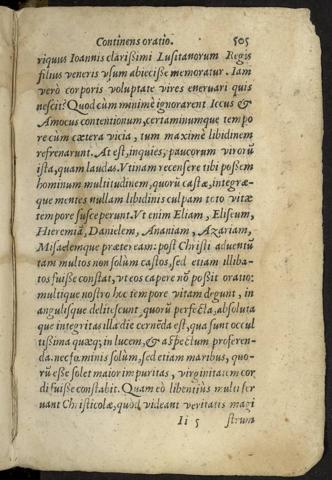 Continens oratio. 505
riquus Ioannis clarißimi Lusitanorum Regis
filius veneris vsum abiecisse memoratur. Iam
verò corporis voluptate vires eneruari quis
nescit? Quod cùm minimè ignorarent Iccus &
Amocus contentionum, certaminumque tempo
re cùm cætera vicia, tum maximè libidinem
refrenarunt. At est, inquies, paucorum virorũ
ista, quam laudas. Vtinam recensere tibi poßem
hominum multitudinem, quorũ castæ, integræ-
que mentes nullam libidinis culpam toto vitæ
tempore susceperunt. Vt enim Eliam, Eliseum,
Hieremiã, Danielem, Ananiam, Azariam,
Misaelemque præteream: post Christi aduentũ
tam multos non solùm castos, sed etiam illiba-
tos fuiße constat, vt eos capere nõ poßit oratio:
multique nostro hoc tempore vitam degunt, in
angulisque delitescunt, quorũ perfecta, absoluta
que integritas illa die cernẽda est, qua sunt occul
tißima quæq; in lucem, & aspectum proferen-
da. nec fœminis solùm, sed etiam maribus, quo-
rũ eße solet maior impuritas, virginitatem cor
di fuiße constabit. Quam eò libentiùs multi ser
uant Christicolæ, quòd videant veritatis magi
Ii 5 strum